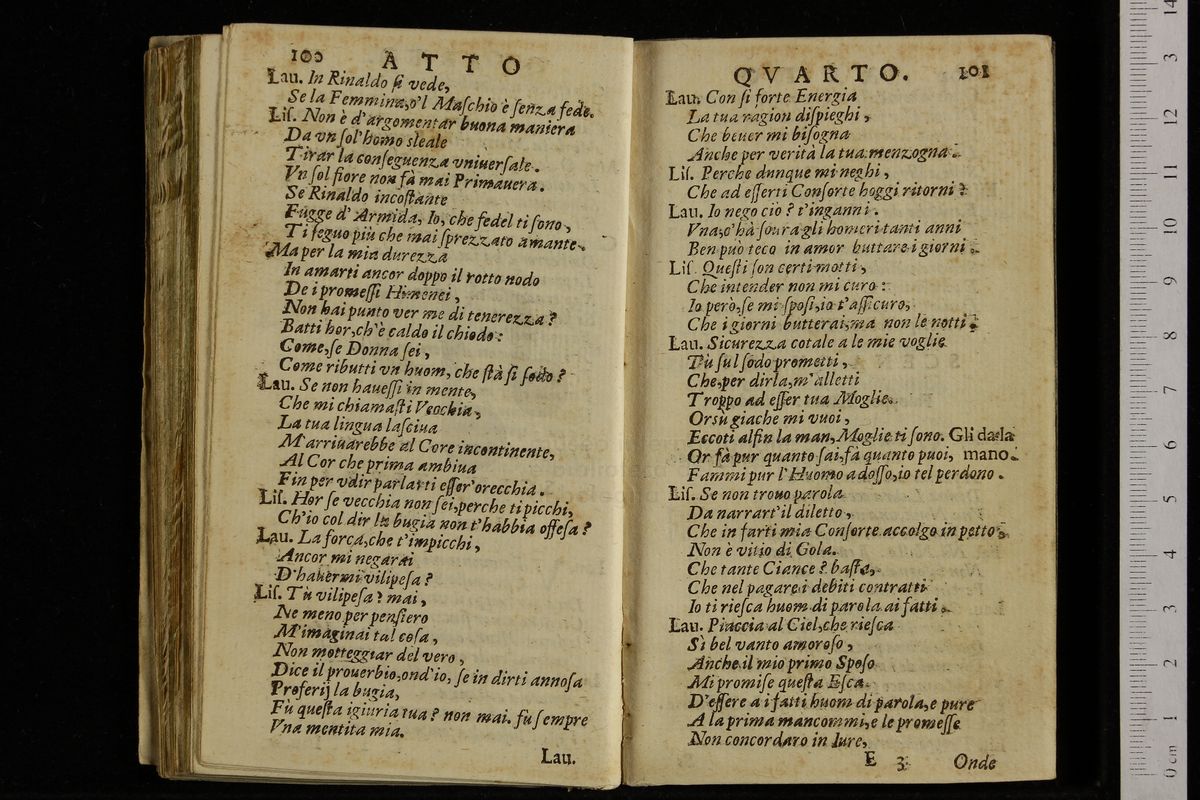 100 ATTO
Lau. In Rinaldo ſi vede,
Se la Femmina, o'l Maſchio è ſenza fede.
Liſ. Non è d'argomentar buona maniera
Da vn ſol'homo sleale
Tirar la conſeguenza vniuerſale.
Vn ſol fiore non fà mai Primauera.
Se Rinaldo incoſtante
Fugge d'Armida, Io, che fedel ti ſono,
Ti ſeguo più che mai ſprezzato amante.
Ma per la mia durezza
In amarti ancor doppo il rotto nodo
De i promeſſi Himenei,
Non hai punto ver me di tenerezza?
Batti hor, ch'è caldo il chiodo:
Come, ſe Donna ſei,
Come ributti vn huom, che ſtà ſi ſodo?
Lau. Se non haueſſi in mente,
Che mi chiamaſti Vecchia,
La tua lingua laſciua
M'arriuarebbe al Core incontinente,
Al Cor che prima ambiua
Fin per vdir parlarti eſſer'orecchia.
Liſ. Hor ſe vecchia non ſei, perche ti picchi,
Ch'io col dir la bugia non t'habbia offeſa?
Lau. La forca, che t'impicchi,
Ancor mi negarai
D'hauermi vilipeſa?
Liſ. Tù vilipeſa? mai,
Ne meno per penſiero
M'imaginai tal coſa,
Non motteggiar del vero,
Dice il prouerbio, ond'io, ſe in dirti annoſa
Proferij la bugia,
Fù queſta igiuria tua? non mai. fù ſempre
Vna mentita mia.
Lau.
QVARTO. 101
Lau. Con ſi forte Energia
La tua ragion diſpieghi,
Che beuer mi biſogna
Anche per verità la tua menzogna.
Liſ. Perche dunque mi neghi,
Che ad eſſerti Conſorte hoggi ritorni?
Lau. Io nego ciò? t'inganni.
Vna, c'hà ſoura gli homeri tanti anni
Ben può teco in amor buttare i giorni.
Liſ. Queſti ſon certi motti,
Che intender non mi curo:
Io però, ſe mi ſpoſi, io t'aſſicuro,
Che i giorni butterai, ma non le notti.
Lau. Sicurezza cotale a le mie voglie
Tù ſul ſodo prometti,
Che, per dirla, m'alletti
Troppo ad eſſer tua Moglie.
Orsu giache mi vuoi,
Eccoti alfin la man, Moglie ti ſono. Gli da la
Or fà pur quanto ſai, fà quanto puoi, mano.
Fammi pur l'Huomo adoſſo, io tel perdono.
Liſ. Se non trouo parola
Da narrart'il diletto,
Che in farti mia Conſorte accolgo in petto,
Non è vitio di Gola.
Che tante Ciance? baſta,
Che nel pagare i debiti contratti
Io ti rieſca huom di parola ai fatti.
Lau. Piaccia al Ciel, che rieſca
Sì bel vanto amoroſo,
Anche il mio primo Spoſo
Mi promiſe queſta Eſca
D'eſſere a i fatti huom di parola, e pure
A la prima mancommi, e le promeſſe
Non concordaro in Iure,
E 3 Onde